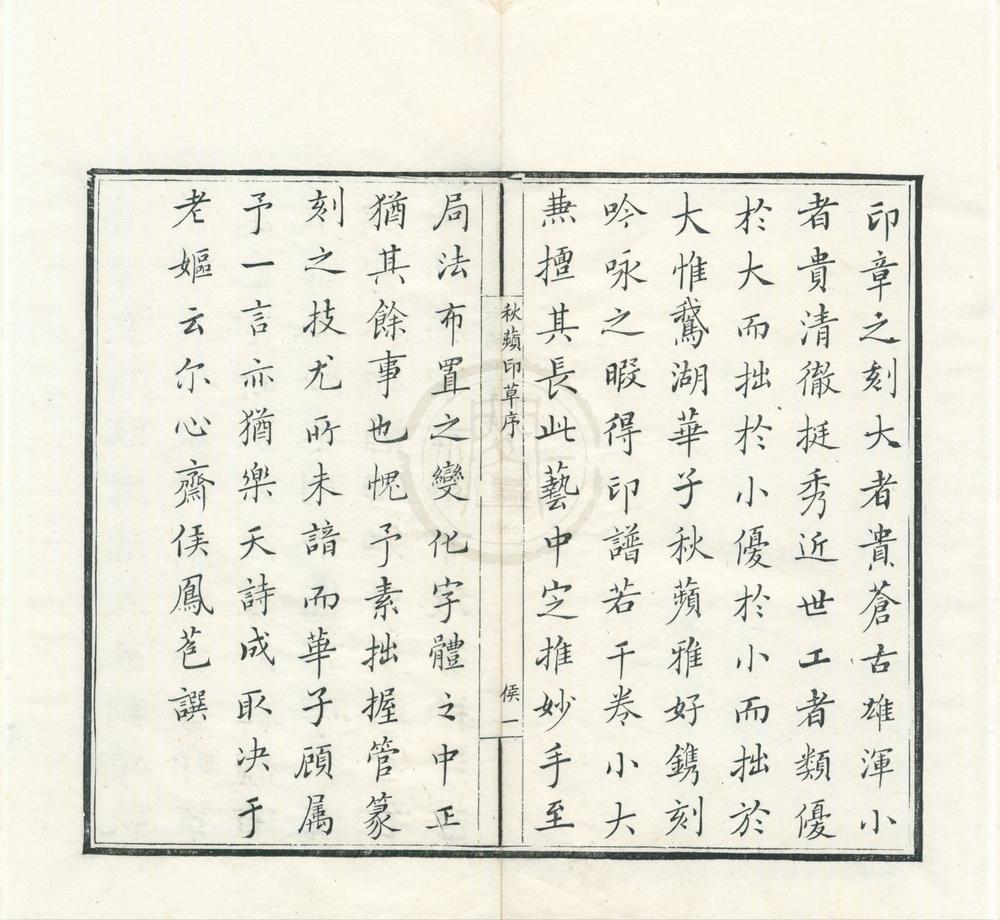 印章之刻大者貴蒼古雄渾小
者貴清徹挺秀近世工者類優
於大而拙於小優於小而拙於
大惟鵞湖華子秋蘋雅好鐫刻
吟咏之暇得印譜若干卷小大
兼擅其長此藝中定推妙手至
秋蘋印草序
侯一
局法布置之變化字體之中正
猶其餘事也愧予素拙握管篆
刻之技尤所未諳而華子顧属
予一言亦猶樂天詩成取决于
老嫗云尔心齋侯鳳苞譔